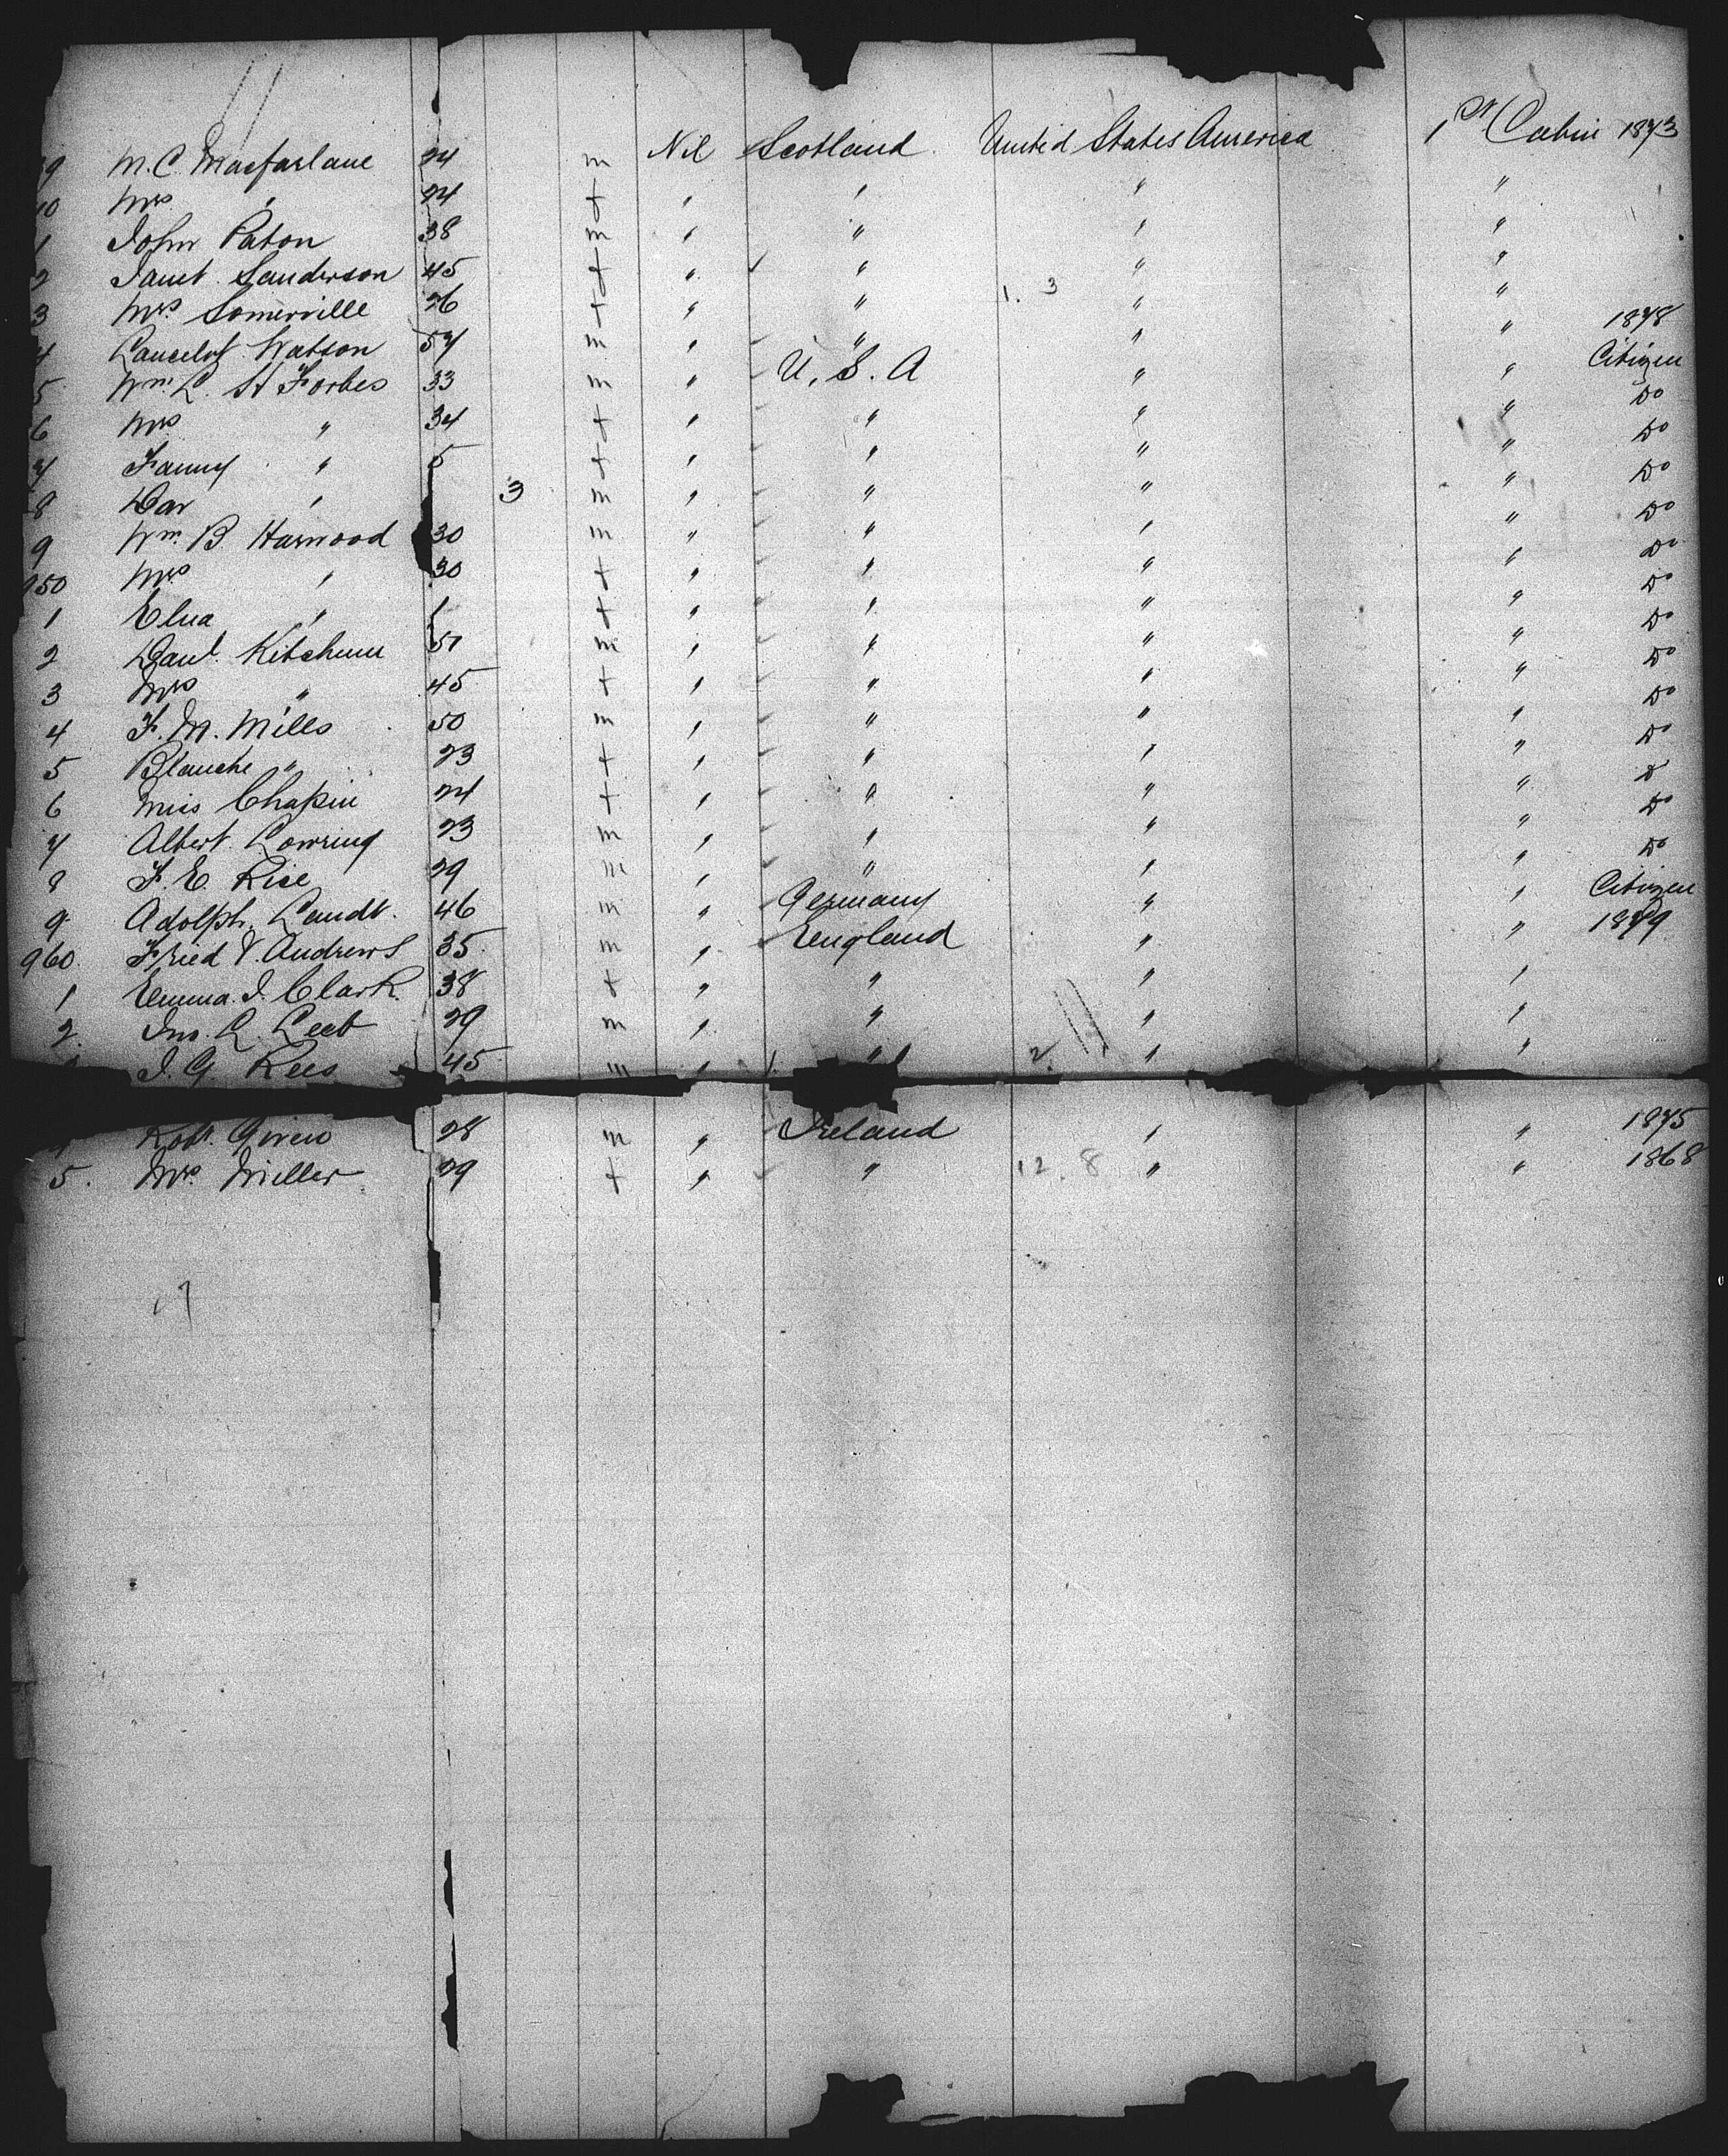 9 M. C. Macfarlane 24 m Nil Scotland United States America 1st Cabin 1873
40 Mrs " 24 + " " " "
1 John Paton 38 m " " " "
2 Janet Sanderson 45 + " ✓ " " "
3 Mrs Somerville 26 + " " 1. 3 " "
4 Lancelot Watson 57 m " " " " 1878
5 Wm. L. St Forbes 33 m " U. S. A " " Citizen
6 Mrs " 34 + " " " " Do
7 Fanny " 5 + " " " " Do
8 " 3 m " " " " Do
9 Wm. B. Harwood 30 m " " " " Do
950 Mrs " 30 + " " " " Do
1 " 1 + " " " " Do
2 Danl. Kitchum 50 m " " " " Do
3 Mrs " 45 + " " " " Do
4 F. M. Mills 50 m " " " " Do
5 Blanche " 23 + " " " " Do
6 Miss Chapin 24 + " " " " Do
7 Albert Lowring 23 m " " " " Do
8 F. E. Rice 29 m " " " " Do
9 Adolph. Landt. 46 m " Germany " " Citizen
960 Fried V. Andrews 35 m " England " " 1879
1 Emma J. Clark. 38 + " " " "
2. Jno. L. Leet 29 m " " " "
J. G. Rees 45 m " 1. " 2. " "
4 Robt. Given 28 m " Ireland " " 1875
5. Mrs. Miller 29 + " " 12. 8 " " 1868